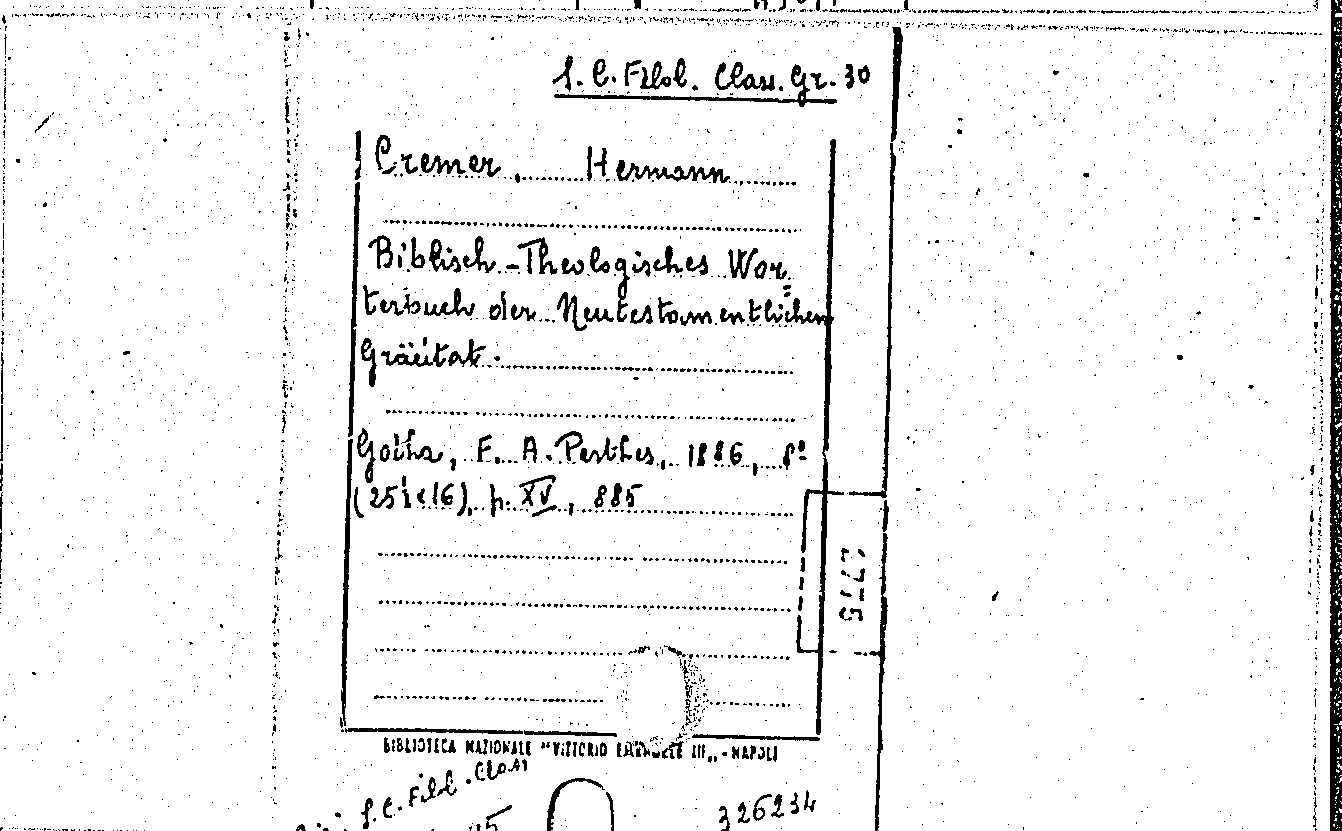 S. C. Filol. Class. Gr. 30
Cremer, Hermann
Biblisch-Theologisches Wor=
terbuch der Neutestamentlichen
Gräcitat.
Gotha, F. A. Perthes, 1886, 8º
(25 16), p. XV, 885
BIBLIOTECA NAZIONALE "VITTORIO EMANUELE III„ - NAPOLI
S. C. Filol. Class
326234